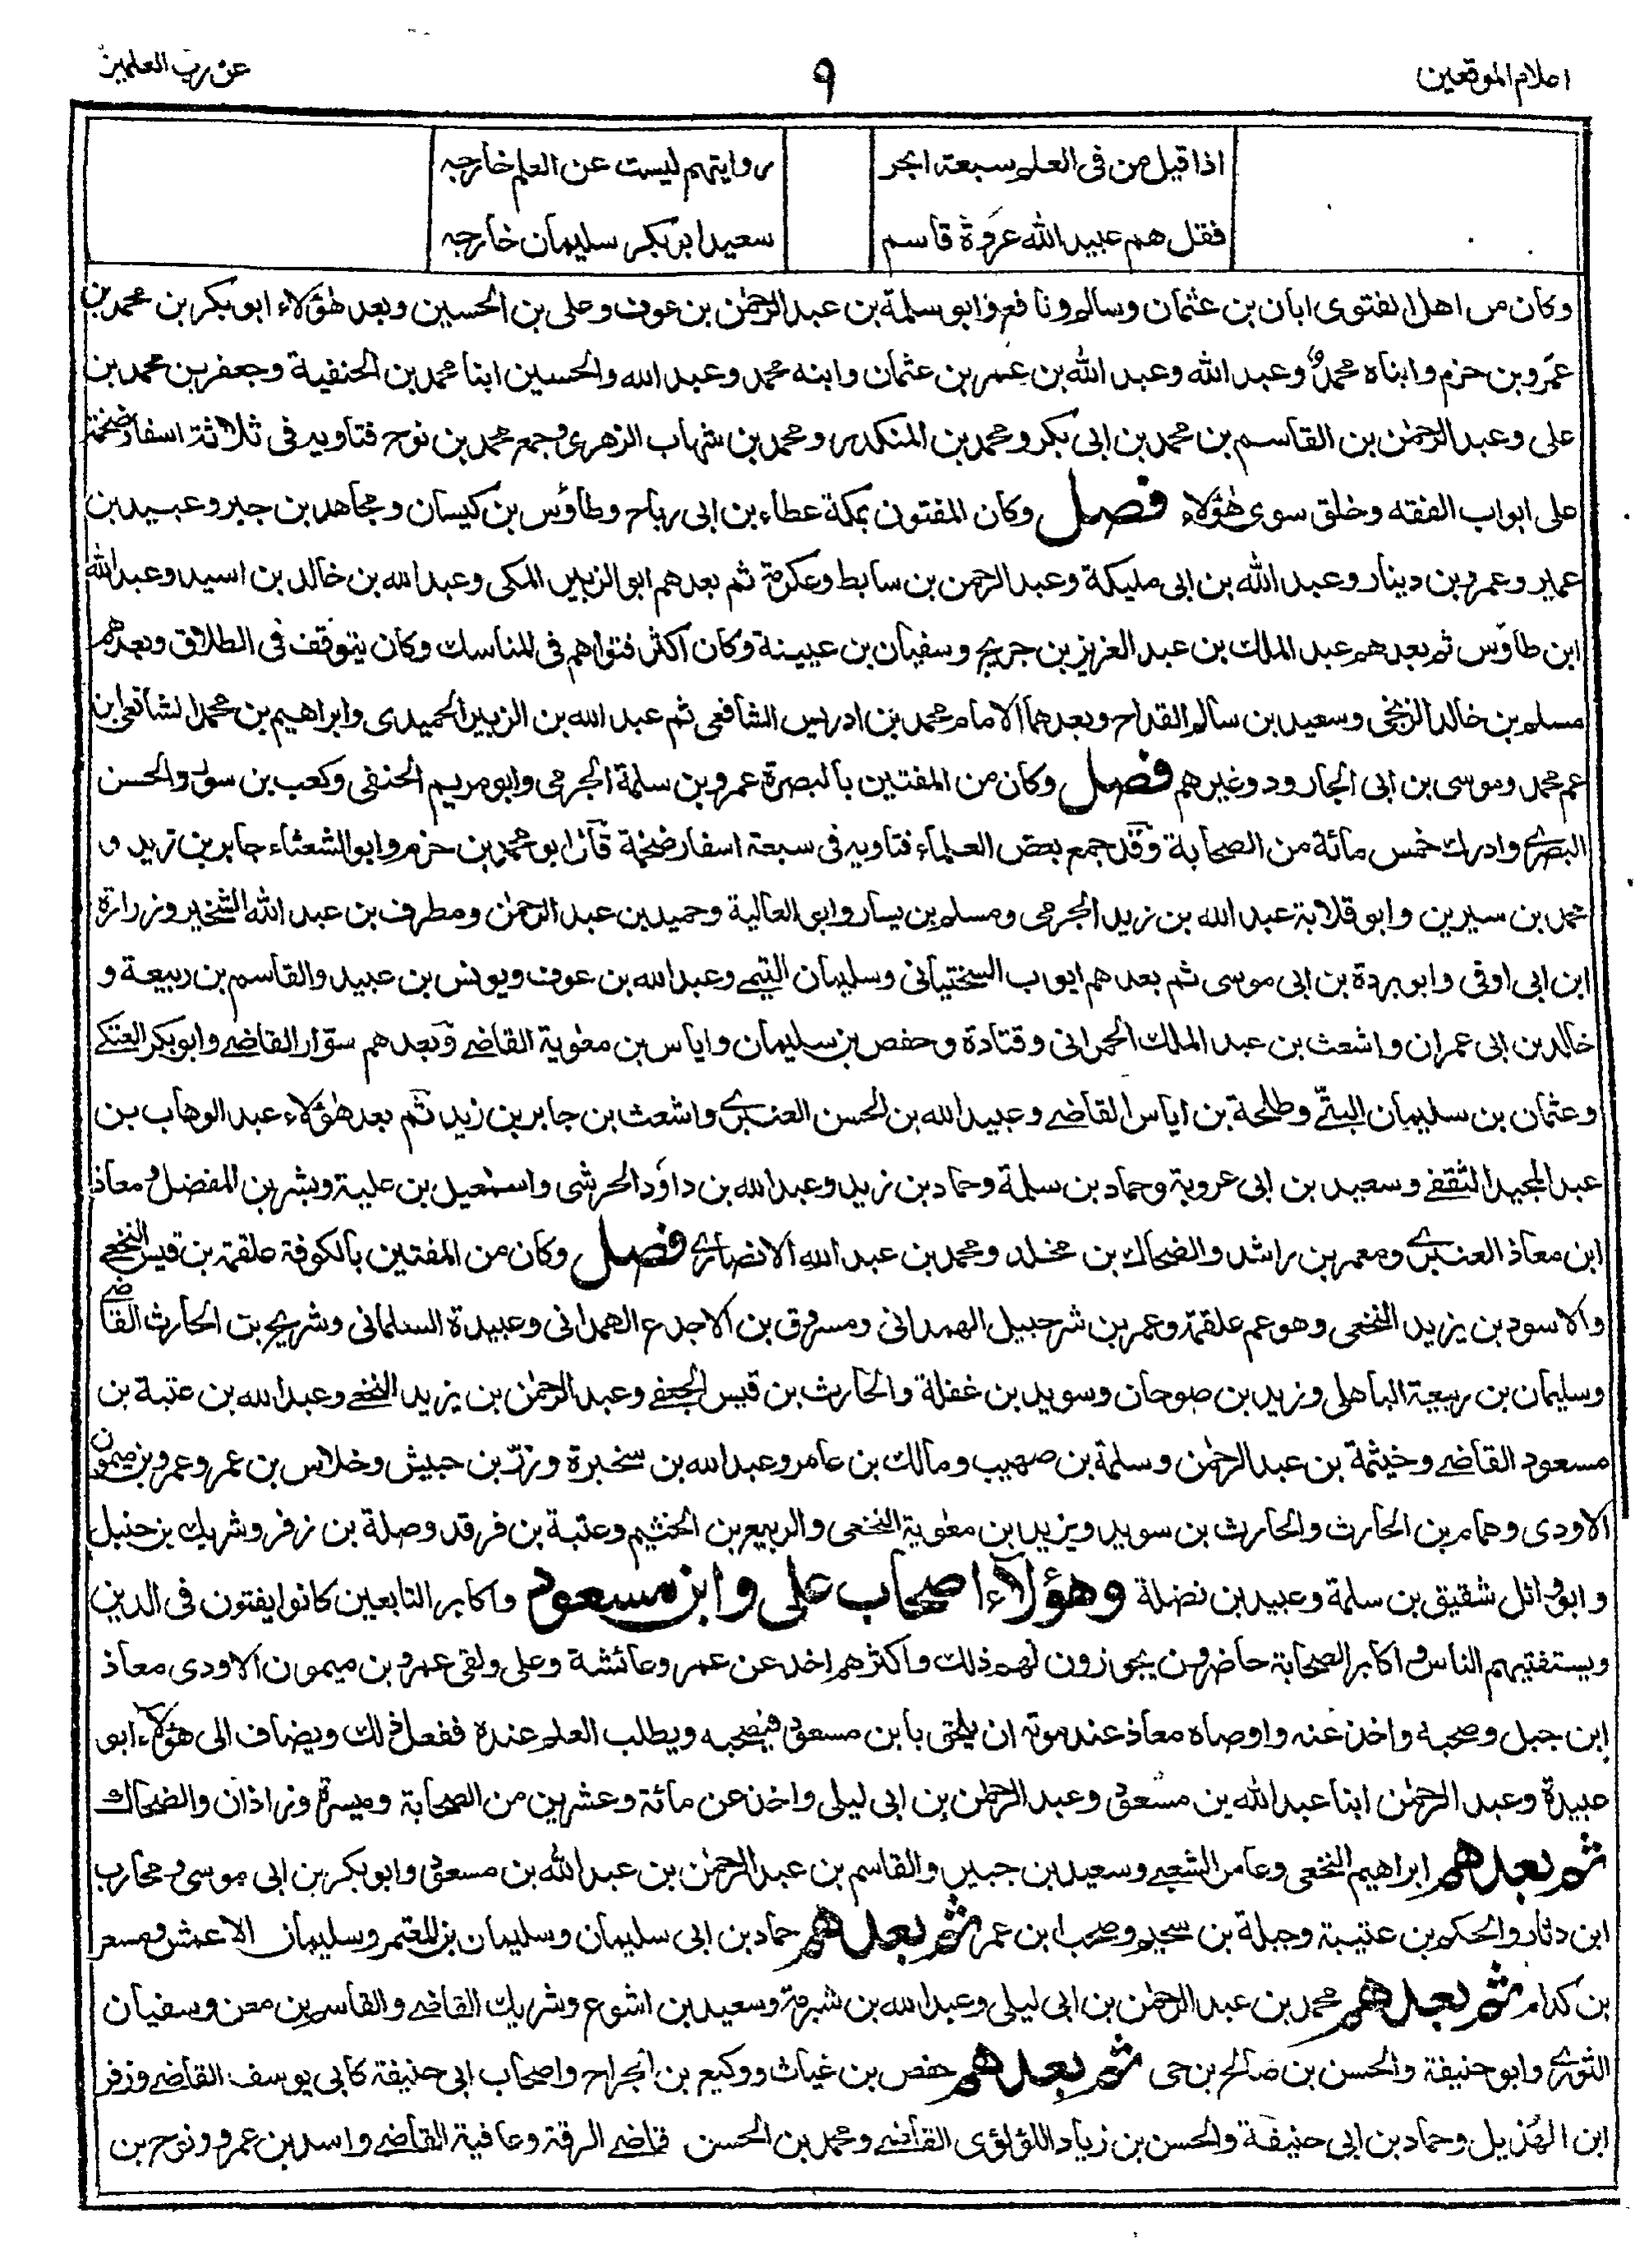 اعلام الموقعين
٩
عن رب العلمين
اذا قيل من في العلم سبعة ابحر
روايتهم ليست عن العلم خارجه
فقل هم عبيد الله عروة قاسم
سعيد ابو بكر سليمان خارجه
وكان من اهل الفتوى ابان بن عثمان وسالم ونافع وابو سلمة بن عبد الرحمٰن بن عوف وعلى بن الحسين وبعد هٰؤلاء ابو بكر بن محمد بن
عمرو بن حزم وابناه محمد وعبد الله وعبد الله بن عمر بن عثمان وابنه محمد وعبد الله والحسين ابنا محمد بن الحنفية وجعفر بن محمد بن
على وعبد الرحمٰن بن القاسم بن محمد بن ابى بكر ومحمد بن المنكدر ومحمد بن شهاب الزهرى وجمع محمد بن نوح فتاويه فى ثلاثة اسفار ضخمة
على ابواب الفقه وخلق سوى هٰؤلاء فصل وكان المفتون بمكة عطاء بن ابى رباح وطاؤس بن كيسان ومجاهد بن جبر وعبيد بن
عمير وعمرو بن دينار وعبد الله بن ابى مليكة وعبد الرحمن بن سابط وعكرمة ثم بعدهم ابو الزبير المكى وعبد الله بن خالد بن اسيد وعبد الله
ابن طاؤس ثم بعدهم عبد الملك بن عبد العزيز بن جريج وسفيان بن عيينة وكان اكثر فتواهم فى المناسك وكان يتوقف فى الطلاق وبعدهم
مسلم بن خالد الزنجى وسعيد بن سالم القداح وبعدهما الامام محمد بن ادريس الشافعى ثم عبد الله بن الزبير الحميدى وابراهيم بن محمد الشافعى ابن
عم محمد وموسى بن ابى الجارود وغيرهم فصل وكان من المفتين بالبصرة عمرو بن سلمة الجرمى وابو مريم الحنفى وكعب بن سور والحسن
البصرے وادرك خمس مائة من الصحابة وقد جمع بعض العلماء فتاويه فى سبعة اسفار ضخمة قال ابو محمد بن حزم وابو الشعثاء جابر بن زيد و
محمد بن سيرين وابو قلابة عبد الله بن زيد الجرمى ومسلم بن يسار وابو العالية وحميد بن عبد الرحمٰن ومطرف بن عبد الله الشخير وزرارة
ابن ابى اوفى وابو بردة بن ابى موسى ثم بعدهم ايوب السختيانى وسليمان التيمے وعبد الله بن عوف ويونس بن عبيد والقاسم بن ربيعة و
خالد بن ابى عمران واشعث بن عبد الملك الحمرانى وقتادة وحفص بن سليمان واياس بن معٰوية القاضے وبعدهم سوّار القاضے وابو بكر العتكے
وعثمان بن سليمان البتّے وطلحة بن اياس القاضے وعبيد الله بن الحسن العنبرے واشعث بن جابر بن زيد ثم بعد هٰؤلاء عبد الوهاب بن
عبد المجيد الثقفے وسعيد بن ابى عروبة وحماد بن سلمة وحماد بن زيد وعبد الله بن داؤد الحرشى واسمٰعيل بن علية وبشر بن المفضل ومعاذ
ابن معاذ العنبرے ومعمر بن راشد والضحاك بن مخلد ومحمد بن عبد الله الانصارے فصل وكان من المفتين بالكوفة علقمة بن قيس النخعے
والاسود بن يزيد النخعى وهو عم علقمة وعمر بن شرحبيل الهمدانى ومسروق بن الاجدع الهمدانى وعبيدة السلمانى وشريح بن الحارث القاضے
وسليمان بن ربيعة الباهلى وزيد بن صوحان وسويد بن غفلة والحارث بن قيس الجعفے وعبد الرحمٰن بن يزيد النخعے وعبد الله بن عتبة بن
مسعود القاضے وخيثمة بن عبد الرحمٰن وسلمة بن صهيب ومالك بن عامر وعبد الله بن سخبرة وزرّ بن حبيش وخلاس بن عمرو وعمرو بن ميمون
الاودى وهمام بن الحارث والحارث بن سويد ويزيد بن معٰوية النخعى والربيع بن الخثيم وعتبة بن فرقد وصلة بن زفر وشريك بن حنبل
وابو وائل شقيق بن سلمة وعبيد بن نضلة وهؤلاء اصحاب على وابن مسعود واكابر التابعين كانوا يفتون فى الدين
ويستفتيهم الناس واكابر الصحابة حاضرون يجوزون لهم ذلك واكثرهم اخذ عن عمر وعائشة وعلى ولقى عمرو بن ميمون الاودى معاذ
ابن جبل وصحبه واخذ عنه واوصاه معاذ عند موته ان يلحق بابن مسعود فيصحبه ويطلب العلم عنده ففعل ذلك ويضاف الى هٰؤلاء ابو
عبيدة وعبد الرحمٰن ابنا عبد الله بن مسعود وعبد الرحمٰن بن ابى ليلى واخذ عن مائة وعشرين من الصحابة وميسرة وزاذان والضحاك
ثم بعدهم ابراهيم النخعى وعامر الشعبے وسعيد بن جبير والقاسم بن عبد الرحمٰن بن عبد الله بن مسعود وابو بكر بن ابى موسى ومحارب
ابن دثار والحكم بن عتيبة وجبلة بن سحيم وصحب ابن عمر ثم بعدهم حماد بن ابى سليمان وسليمان بن المعتمر وسليمان الاعمش ومسعر
بن كدام ثم بعدهم محمد بن عبد الرحمٰن بن ابى ليلى وعبد الله بن شبرمة وسعيد بن اشوع وشريك القاضے والقاسم بن معن وسفيان
الثورے وابو حنيفة والحسن بن صالح بن حى ثم بعدهم حفص بن غياث ووكيع بن الجراح واصحاب ابى حنيفة كابى يوسف القاضے وزفر
ابن الهُذيل وحماد بن ابى حنيفة والحسن بن زياد اللؤلؤى القاضے ومحمد بن الحسن قاضے الرقة وعافية القاضے واسد بن عمرو ونوح بن